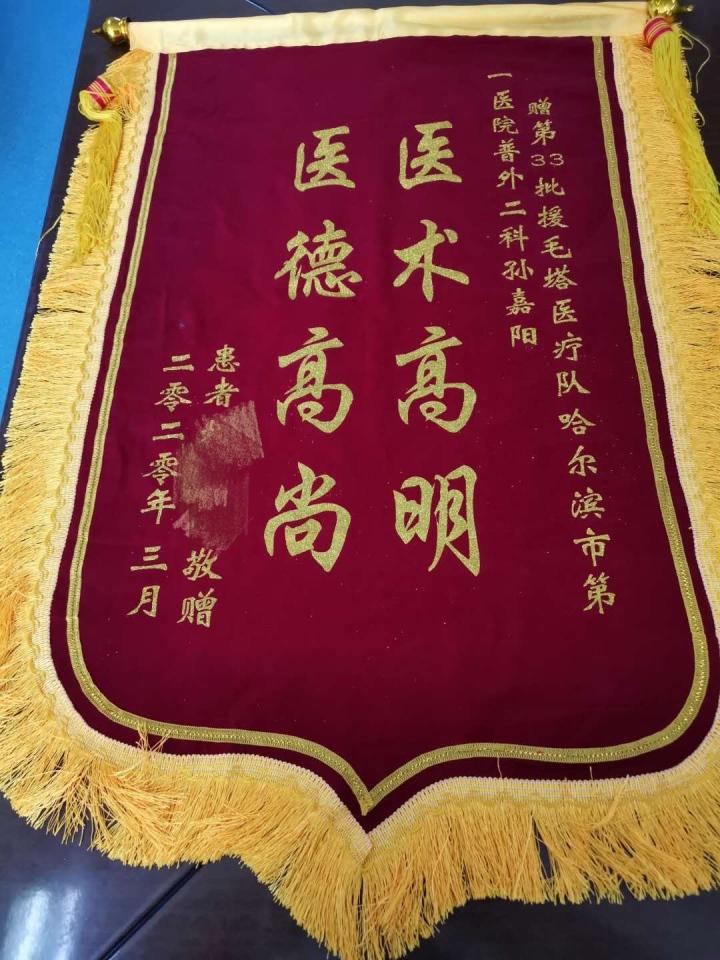 赠第33批援毛塔医疗队哈尔滨市第
一医院普外二科孙嘉阳
医术高明
医德高尚
患者
敬赠
二零二零年三月